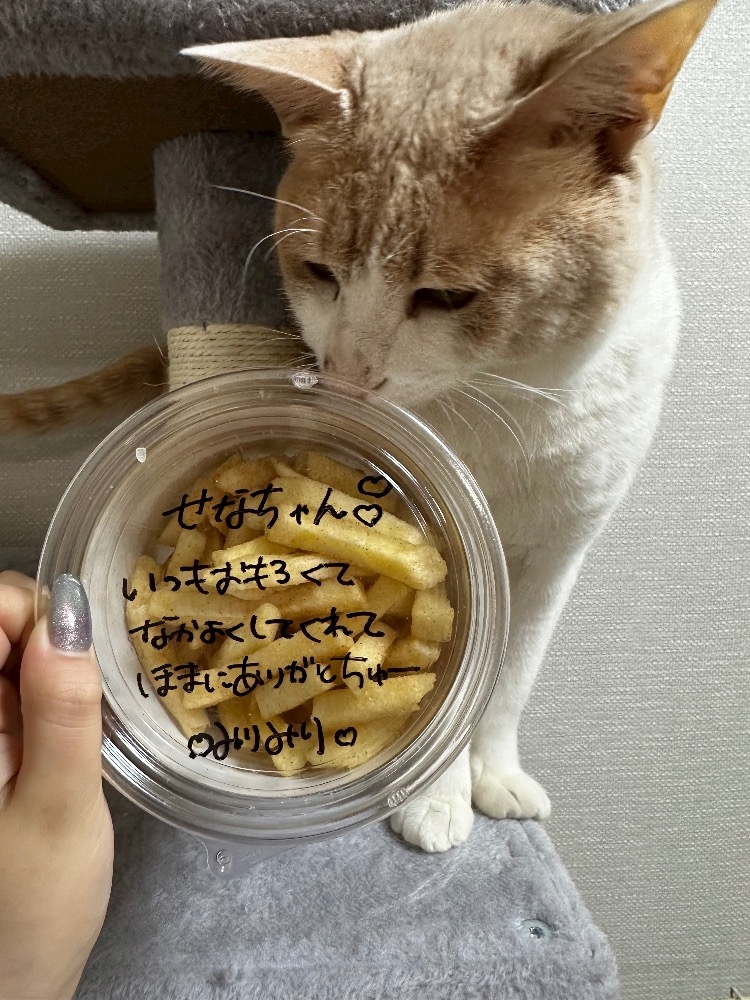 せなちゃん♡♡
いつもおもろくて
なかよくしてくれて
ほまにありがとちゅー
♡みりみり♡